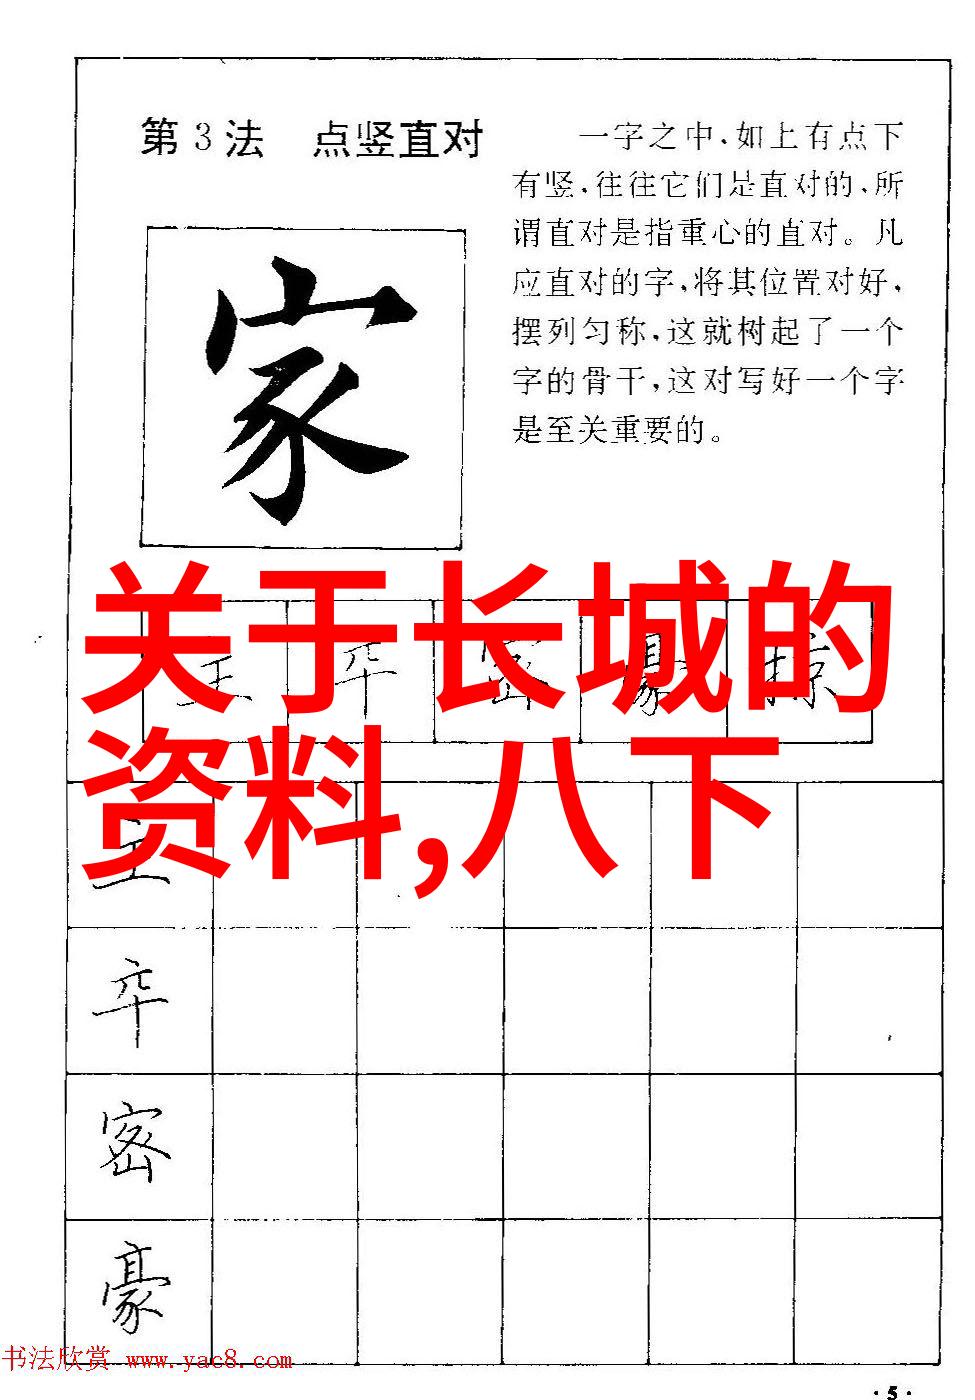 第3法 点竖直对
一字之中,如上有点下
有竖,往往它们是直对的,所
谓直对是指重心的直对。凡
应直对的字,将其位置对好,
摆列匀称,这就树起了一个
字的骨干,这对写好一个字
是至关重要的。
家
关于长城的
资料,八下
主 卒 密 豪 掠
主
卒
密
豪
书法欣赏 www.yac8.com
·5·